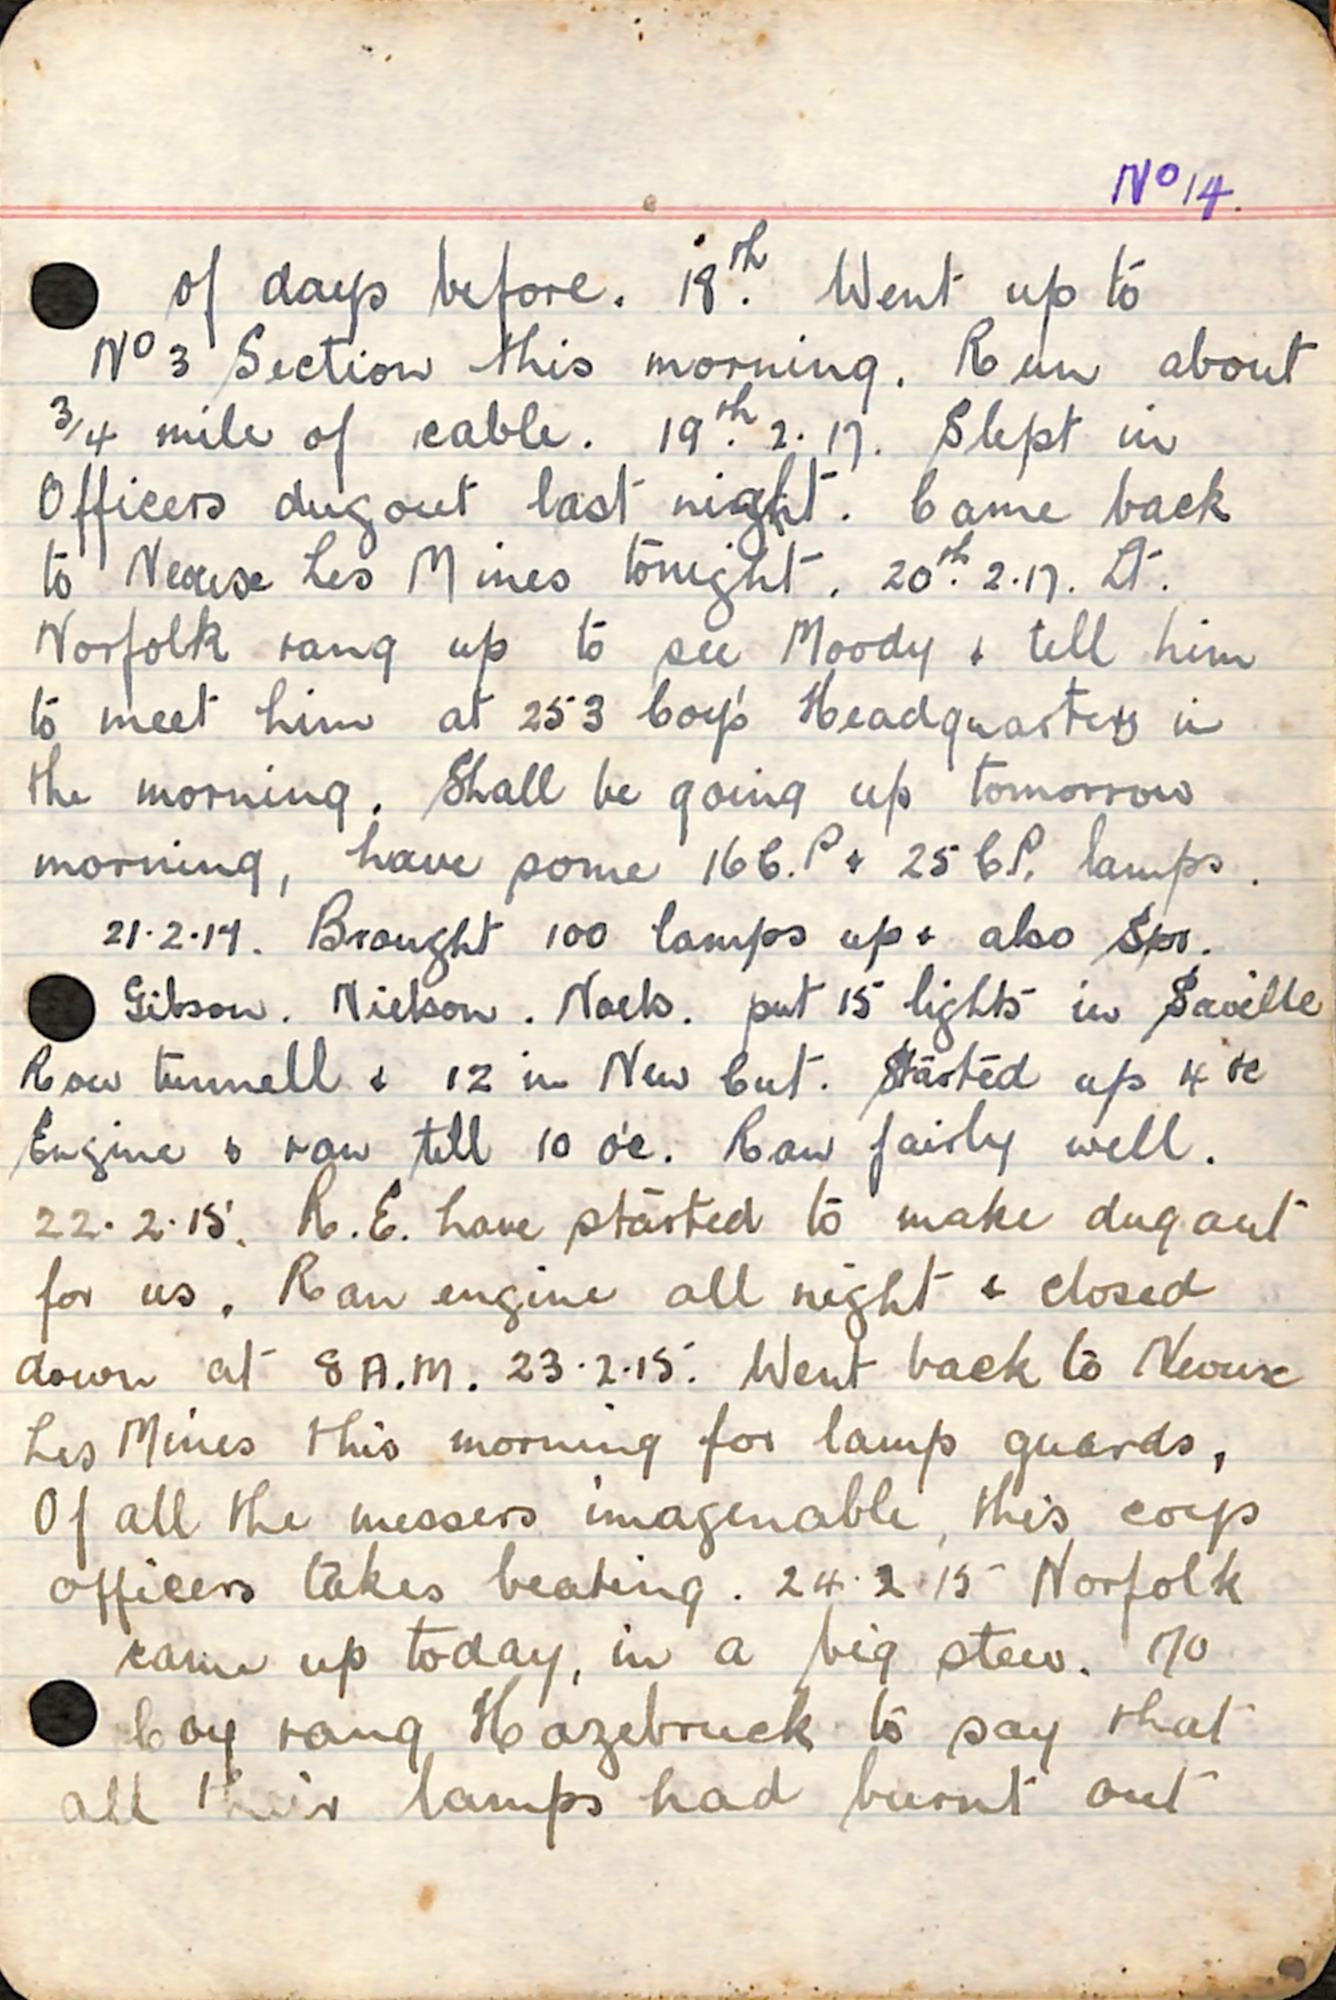 No 14.
of days before. 18th. Went up to
No 3 Section this morning. Run about
3/4 mile of cable. 19th. 2. 17. Slept in
Officers dugout last night. Came back
to Neouse Les Mines tonight. 20th. 2.17. Lt.
Norfolk rang up to see Moody & tell him
to meet him at 253 Coy's Headquarters in
the morning. Shall be going up tomorrow
morning, have some 16 C.P & 25 C.P. lamps.
21.2.17. Brought 100 lamps up & also Spr.
Gibson. Nielson. Noels. put 15 lights in Saville
Row tunnell & 12 in New Cut. Started up 4 oc
Engine & ran till 10 o'c. Ran fairly well.
22.2.15. R.E. have started to make dugout
for us. Ran engine all night & closed
down at 8 A.M. 23.2.15. Went back to Neouse
Les Mines this morning for lamp guards,
Of all the messers imagenable, this corps
officers takes beating. 24.2.15 Norfolk
came up today, in a big stew. 170
Coy rang Hazebruck to say that
all their lamps had burnt out